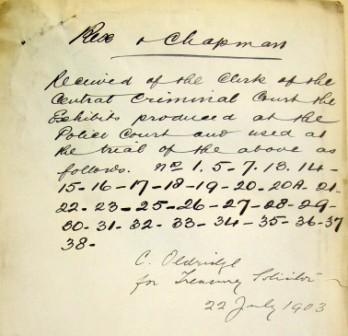 Rex v Chapman
Received of the Clerk of the
Central Criminal Court the
Exhibits produced at the
Police Court and used at
the trial of the above as
follows. No 1. 5-7. 13. 14-
15-16-17-18-19-20-20A-21-
22-23-25-26-27-28-29-
30-31-32-33-34-35-36-37
38-
C. Oldridge
for Treasury Solicitor
22 July 1903